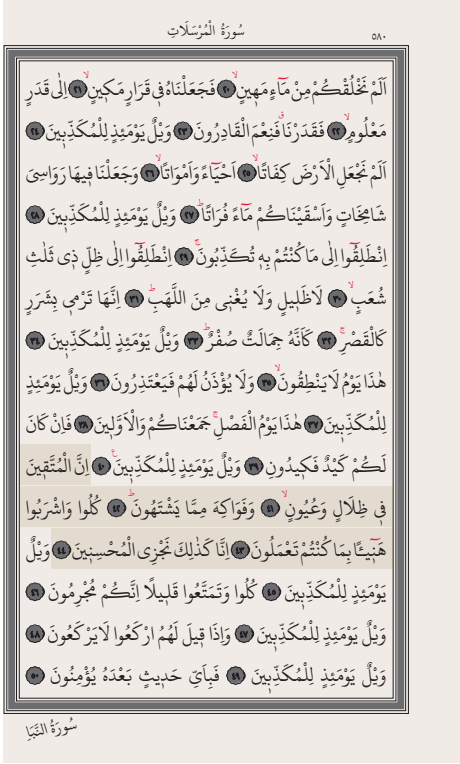 سُورَةُ الْمُرْسَلَاتِ
٥٨٠
اَلَمْ نَخْلُقْكُمْ مِنْ مَٓاءٍ مَهٖينٍۙ ﴿٢٠﴾ فَجَعَلْنَاهُ فٖي قَرَارٍ مَكٖينٍۙ ﴿٢١﴾ اِلٰى قَدَرٍ
مَعْلُومٍۙ ﴿٢٢﴾ فَقَدَرْنَاۗ فَنِعْمَ الْقَادِرُونَ ﴿٢٣﴾ وَيْلٌ يَوْمَئِذٍ لِلْمُكَذِّبٖينَ ﴿٢٤﴾
اَلَمْ نَجْعَلِ الْاَرْضَ كِفَاتًاۙ ﴿٢٥﴾ اَحْيَٓاءً وَاَمْوَاتًاۙ ﴿٢٦﴾ وَجَعَلْنَا فٖيهَا رَوَاسِيَ
شَامِخَاتٍ وَاَسْقَيْنَاكُمْ مَٓاءً فُرَاتًاۜ ﴿٢٧﴾ وَيْلٌ يَوْمَئِذٍ لِلْمُكَذِّبٖينَ ﴿٢٨﴾
اِنْطَلِقُٓوا اِلٰى مَا كُنْتُمْ بِهٖ تُكَذِّبُونَۚ ﴿٢٩﴾ اِنْطَلِقُٓوا اِلٰى ظِلٍّ ذٖي ثَلٰثِ
شُعَبٍۙ ﴿٣٠﴾ لَا ظَلٖيلٍ وَلَا يُغْنٖي مِنَ اللَّهَبِۜ ﴿٣١﴾ اِنَّهَا تَرْمٖي بِشَرَرٍ
كَالْقَصْرِۚ ﴿٣٢﴾ كَاَنَّهُ جِمَالَتٌ صُفْرٌۜ ﴿٣٣﴾ وَيْلٌ يَوْمَئِذٍ لِلْمُكَذِّبٖينَ ﴿٣٤﴾
هٰذَا يَوْمُ لَا يَنْطِقُونَۙ ﴿٣٥﴾ وَلَا يُؤْذَنُ لَهُمْ فَيَعْتَذِرُونَ ﴿٣٦﴾ وَيْلٌ يَوْمَئِذٍ
لِلْمُكَذِّبٖينَ ﴿٣٧﴾ هٰذَا يَوْمُ الْفَصْلِۚ جَمَعْنَاكُمْ وَالْاَوَّلٖينَ ﴿٣٨﴾ فَاِنْ كَانَ
لَكُمْ كَيْدٌ فَكٖيدُونِ ﴿٣٩﴾ وَيْلٌ يَوْمَئِذٍ لِلْمُكَذِّبٖينَ۟ ﴿٤٠﴾ اِنَّ الْمُتَّقٖينَ
فٖي ظِلَالٍ وَعُيُونٍۙ ﴿٤١﴾ وَفَوَاكِهَ مِمَّا يَشْتَهُونَۜ ﴿٤٢﴾ كُلُوا وَاشْرَبُوا
هَنٖٓيـًٔا بِمَا كُنْتُمْ تَعْمَلُونَ ﴿٤٣﴾ اِنَّا كَذٰلِكَ نَجْزِي الْمُحْسِنٖينَ ﴿٤٤﴾ وَيْلٌ
يَوْمَئِذٍ لِلْمُكَذِّبٖينَ ﴿٤٥﴾ كُلُوا وَتَمَتَّعُوا قَلٖيلًا اِنَّكُمْ مُجْرِمُونَ ﴿٤٦﴾
وَيْلٌ يَوْمَئِذٍ لِلْمُكَذِّبٖينَ ﴿٤٧﴾ وَاِذَا قٖيلَ لَهُمُ ارْكَعُوا لَا يَرْكَعُونَ ﴿٤٨﴾
وَيْلٌ يَوْمَئِذٍ لِلْمُكَذِّبٖينَ ﴿٤٩﴾ فَبِاَيِّ حَدٖيثٍ بَعْدَهُ يُؤْمِنُونَ ﴿٥٠﴾
سُورَةُ النَّبَاِ